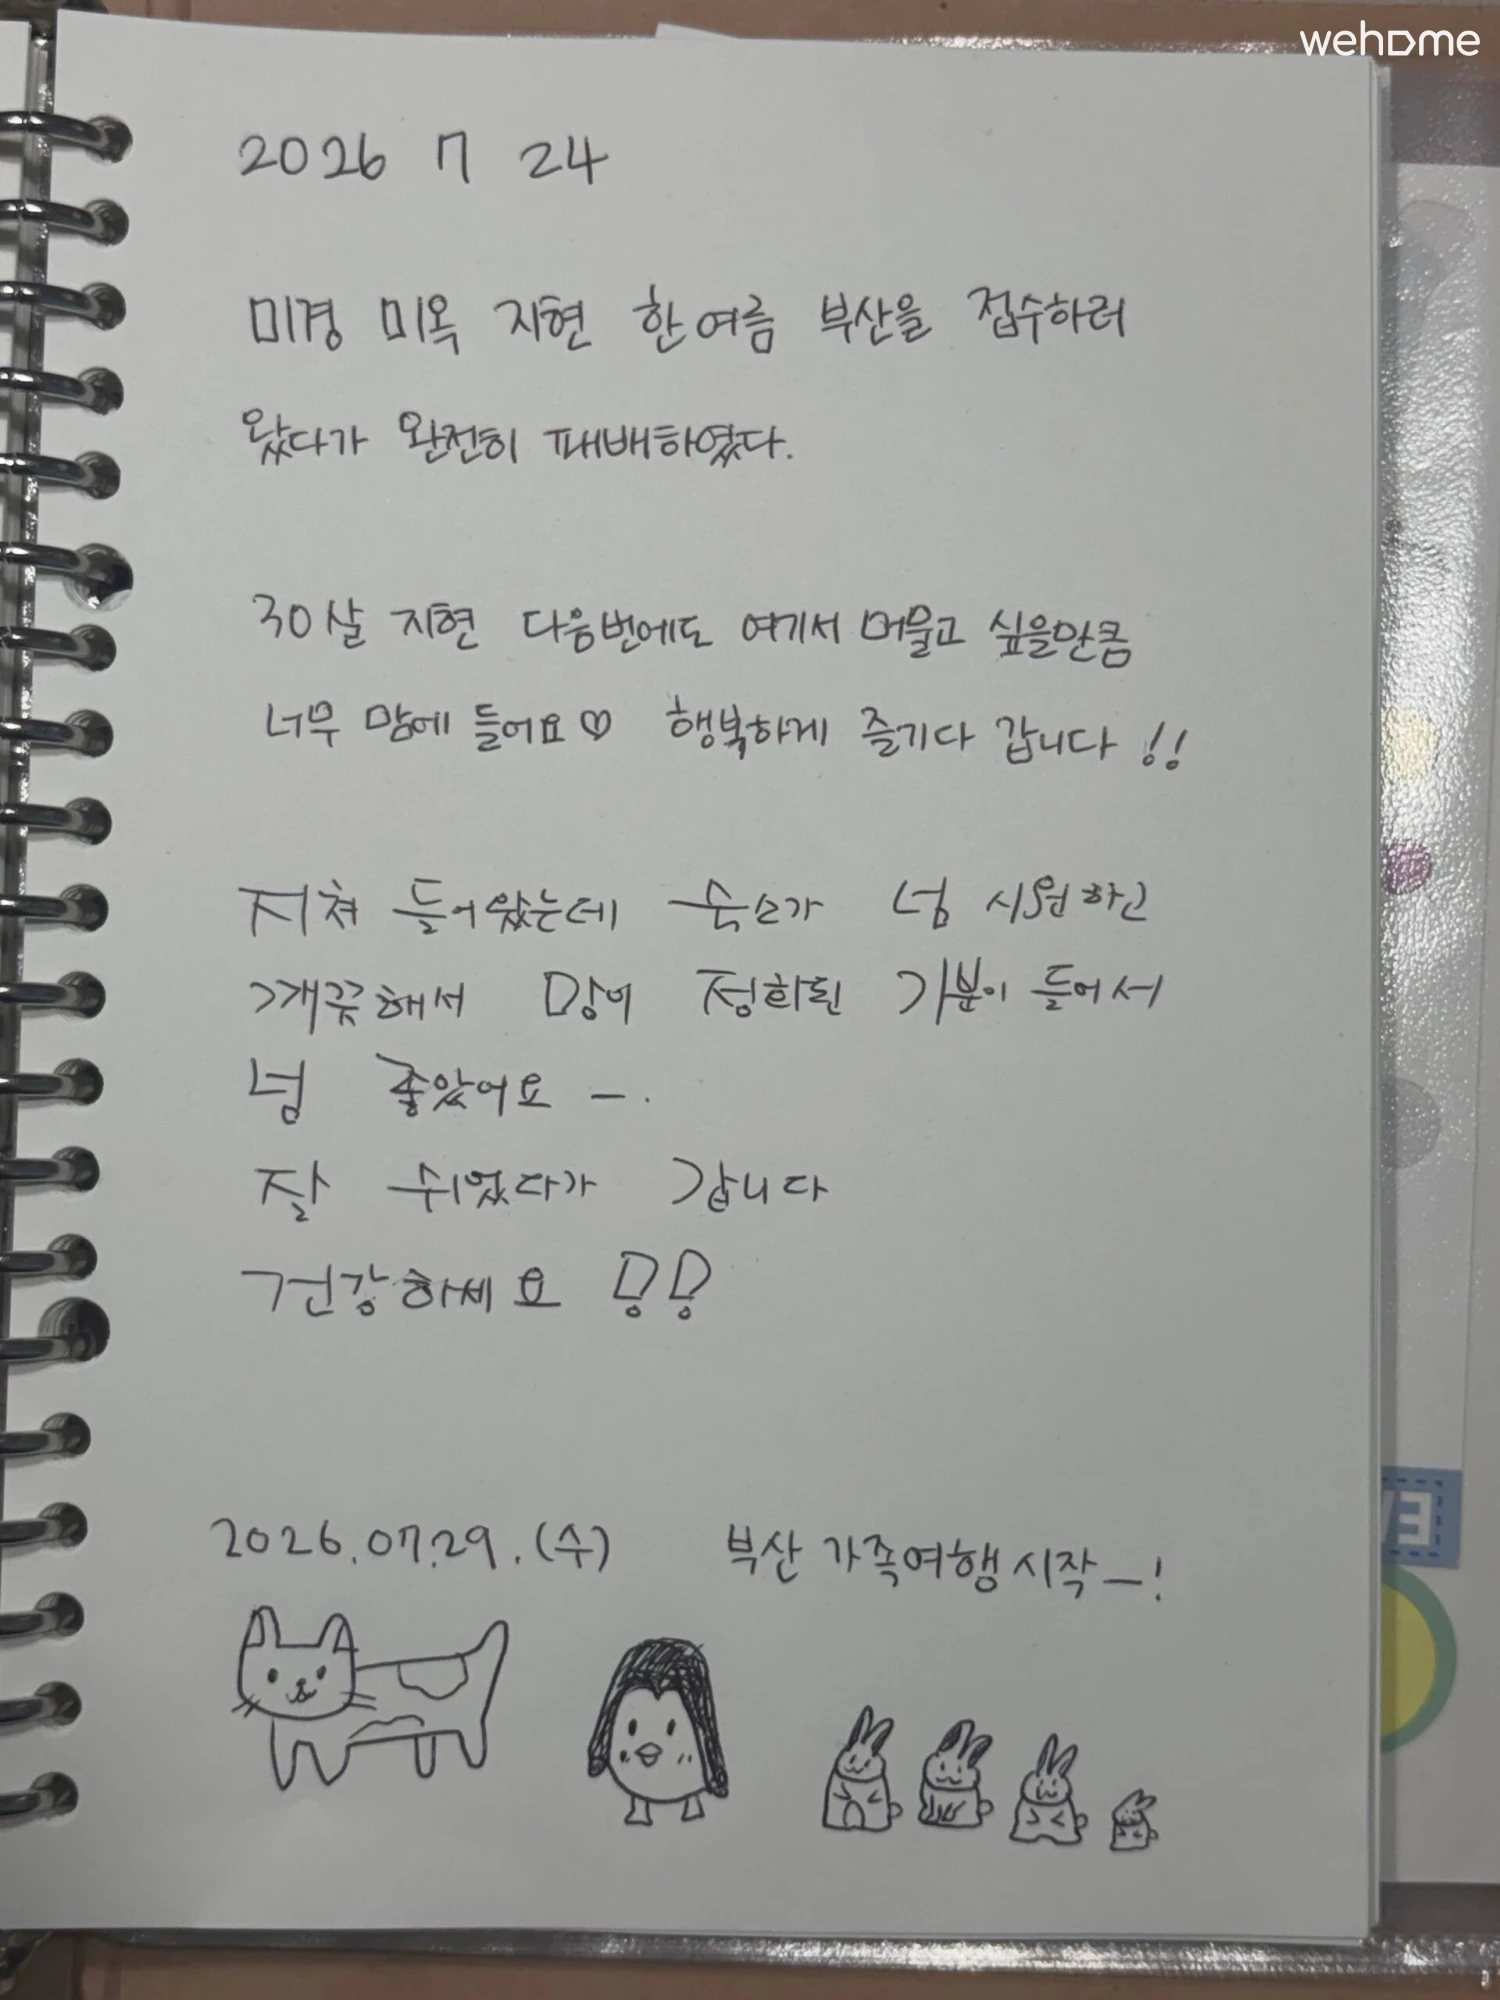 wehome
2026 7 24
미경 미옥 지현 한여름 부산을 접수하러
왔다가 완전히 패배하였다.
30살 지현 다음번에도 여기서 머물고 싶을만큼
너무 맘에 들어요♡ 행복하게 즐기다 갑니다!!
지쳐 들어왔는데 숙소가 넘 시원하고
깨끗해서 맘이 정화된 기분이 들어서
넘 좋았어요 ㅡ.
잘 쉬었다가 갑니다
건강하세요 !!
2026.07.29.(수) 부산 가족여행 시작ㅡ!